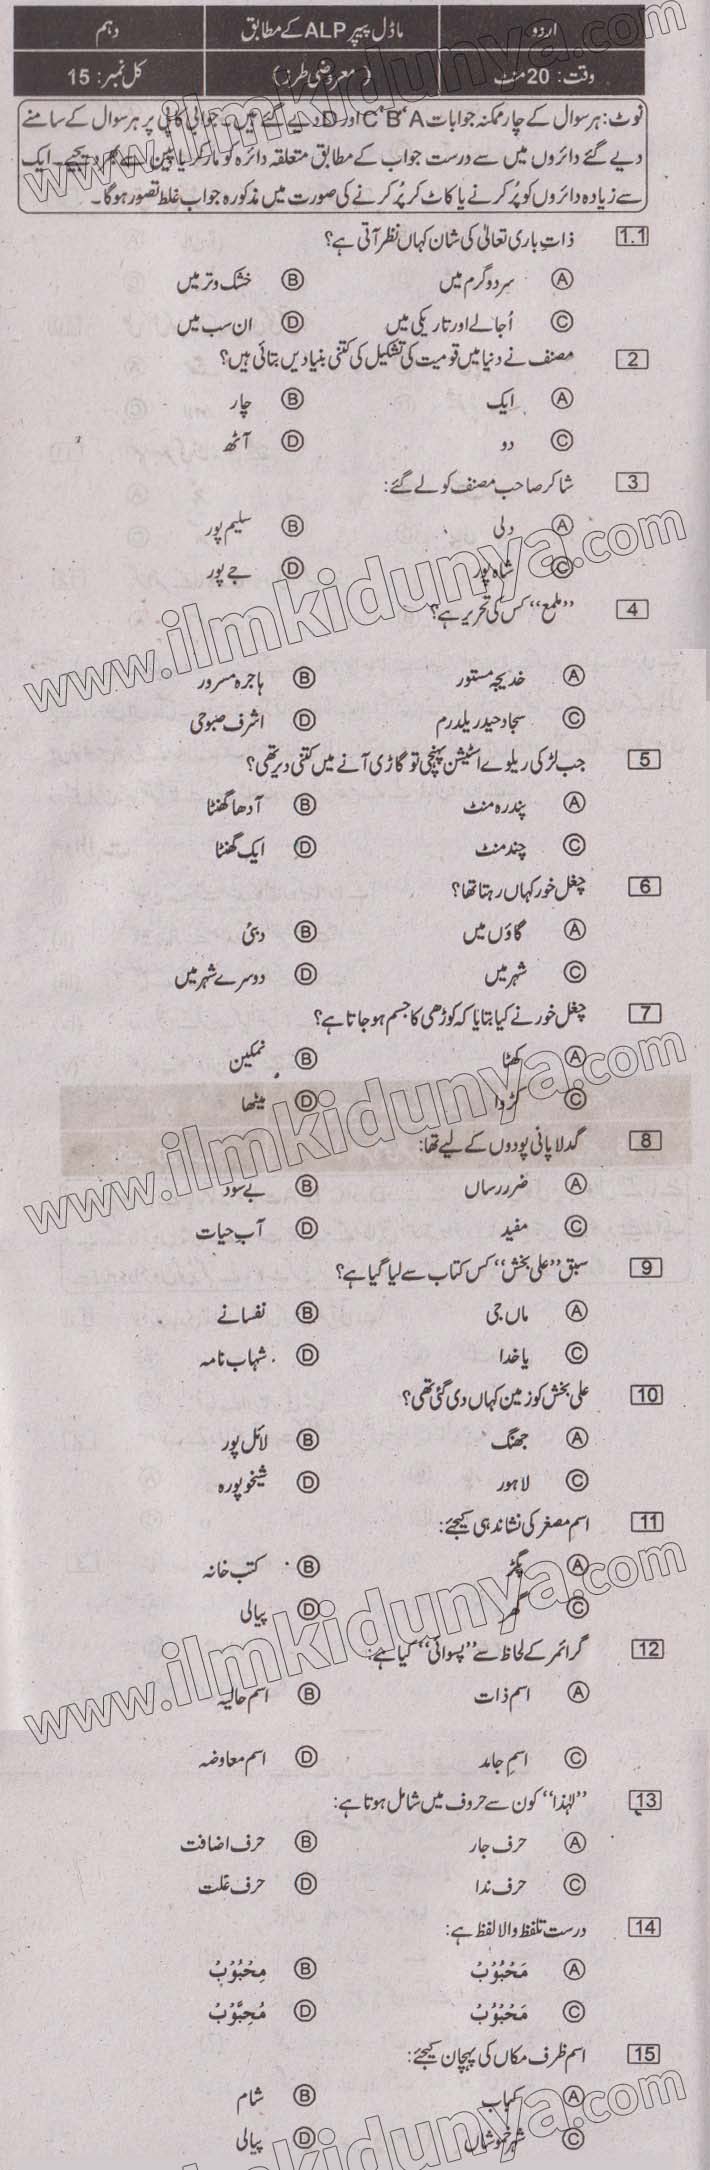 اردو ماڈل پیپر ALP کے مطابق دہم
وقت: 20 منٹ (معروضی طرز) کل نمبر: 15
نوٹ: ہر سوال کے چار ممکنہ جوابات A، B، C اور D دیے گئے ہیں۔ جوابی کاپی پر ہر سوال کے سامنے
دیے گئے دائروں میں سے درست جواب کے مطابق متعلقہ دائرہ کو مارکر یا پین سے بھر دیجیے۔ ایک
سے زیادہ دائروں کو پُر کرنے یا کاٹ کر پُر کرنے کی صورت میں مذکورہ جواب غلط تصور ہوگا۔
1.1 ذاتِ باری تعالیٰ کی شان کہاں نظر آتی ہے؟
A سرد و گرم میں B خشک و تر میں
C اُجالے اور تاریکی میں D ان سب میں
2 مصنف نے دنیا میں قومیت کی تشکیل کی کتنی بنیادیں بتائی ہیں؟
A ایک B چار
C دو D آٹھ
3 شاکر صاحب مصنف کو لے گئے:
A دلی B سلیم پور
C شاہ پور D جے پور
4 "ملمع" کس کی تحریر ہے؟
A خدیجہ مستور B ہاجرہ مسرور
C سجاد حیدر یلدرم D اشرف صبوحی
5 جب لڑکی ریلوے اسٹیشن پہنچی تو گاڑی آنے میں کتنی دیر تھی؟
A پندرہ منٹ B آدھا گھنٹا
C چند منٹ D ایک گھنٹا
6 چغل خور کہاں رہتا تھا؟
A گاؤں میں B دبئی
C شہر میں D دوسرے شہر میں
7 چغل خور نے کیا بتایا کہ کوڑھی کا جسم ہو جاتا ہے؟
A کھٹا B نمکین
C کڑوا D میٹھا
8 گدلا پانی پودوں کے لیے تھا:
A ضرر رساں B بے سود
C مفید D آبِ حیات
9 سبق "علی بخش" کس کتاب سے لیا گیا ہے؟
A ماں جی B نفسانے
C یا خدا D شہاب نامہ
10 علی بخش کو زمین کہاں دی گئی تھی؟
A جھنگ B لائل پور
C لاہور D شیخوپورہ
11 اسم مصغر کی نشاندہی کیجئے:
A پگڑ B کتب خانہ
C گھر D پیالی
12 گرائمر کے لحاظ سے "پسوائی" کیا ہے:
A اسم ذات B اسم حالیہ
C اسمِ جامد D اسم معاوضہ
13 "لہٰذا" کون سے حروف میں شامل ہوتا ہے:
A حرف جار B حرف اضافت
C حرف ندا D حرف علت
14 درست تلفظ والا لفظ ہے:
A مَحْبُوْبْ B مِحْبُوْبْ
C مَحْبُوْبْ D مُحِبُّوْبْ
15 اسم ظرف مکاں کی پہچان کیجئے:
A کباب B شام
C شہرِ خموشاں D پیالی
www.ilmkidunya.com
www.ilmkidunya.com
www.ilmkidunya.com
www.ilmkidunya.com
ilmkidunya.com